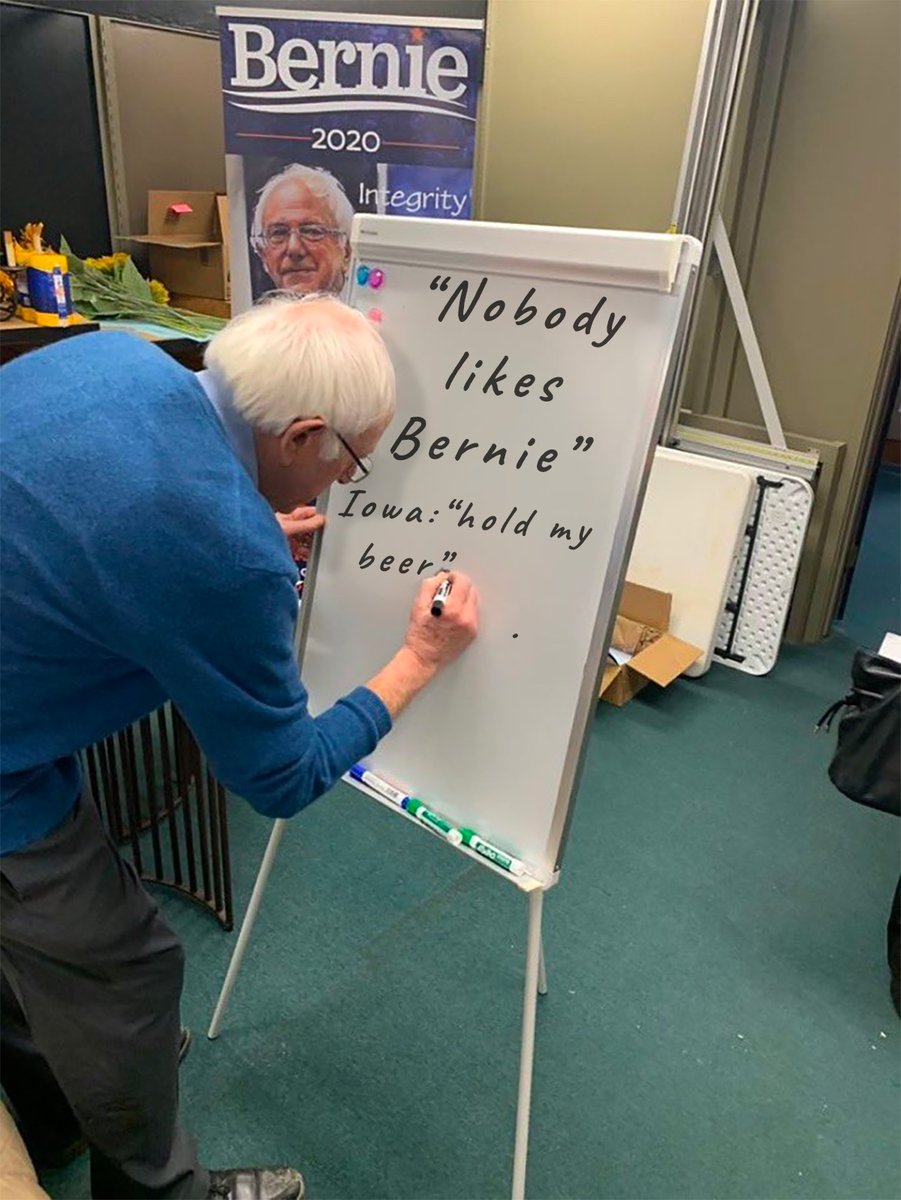 Bernie
2020
Integrity
“Nobody
likes
Bernie”
Iowa: “hold my
beer”
.